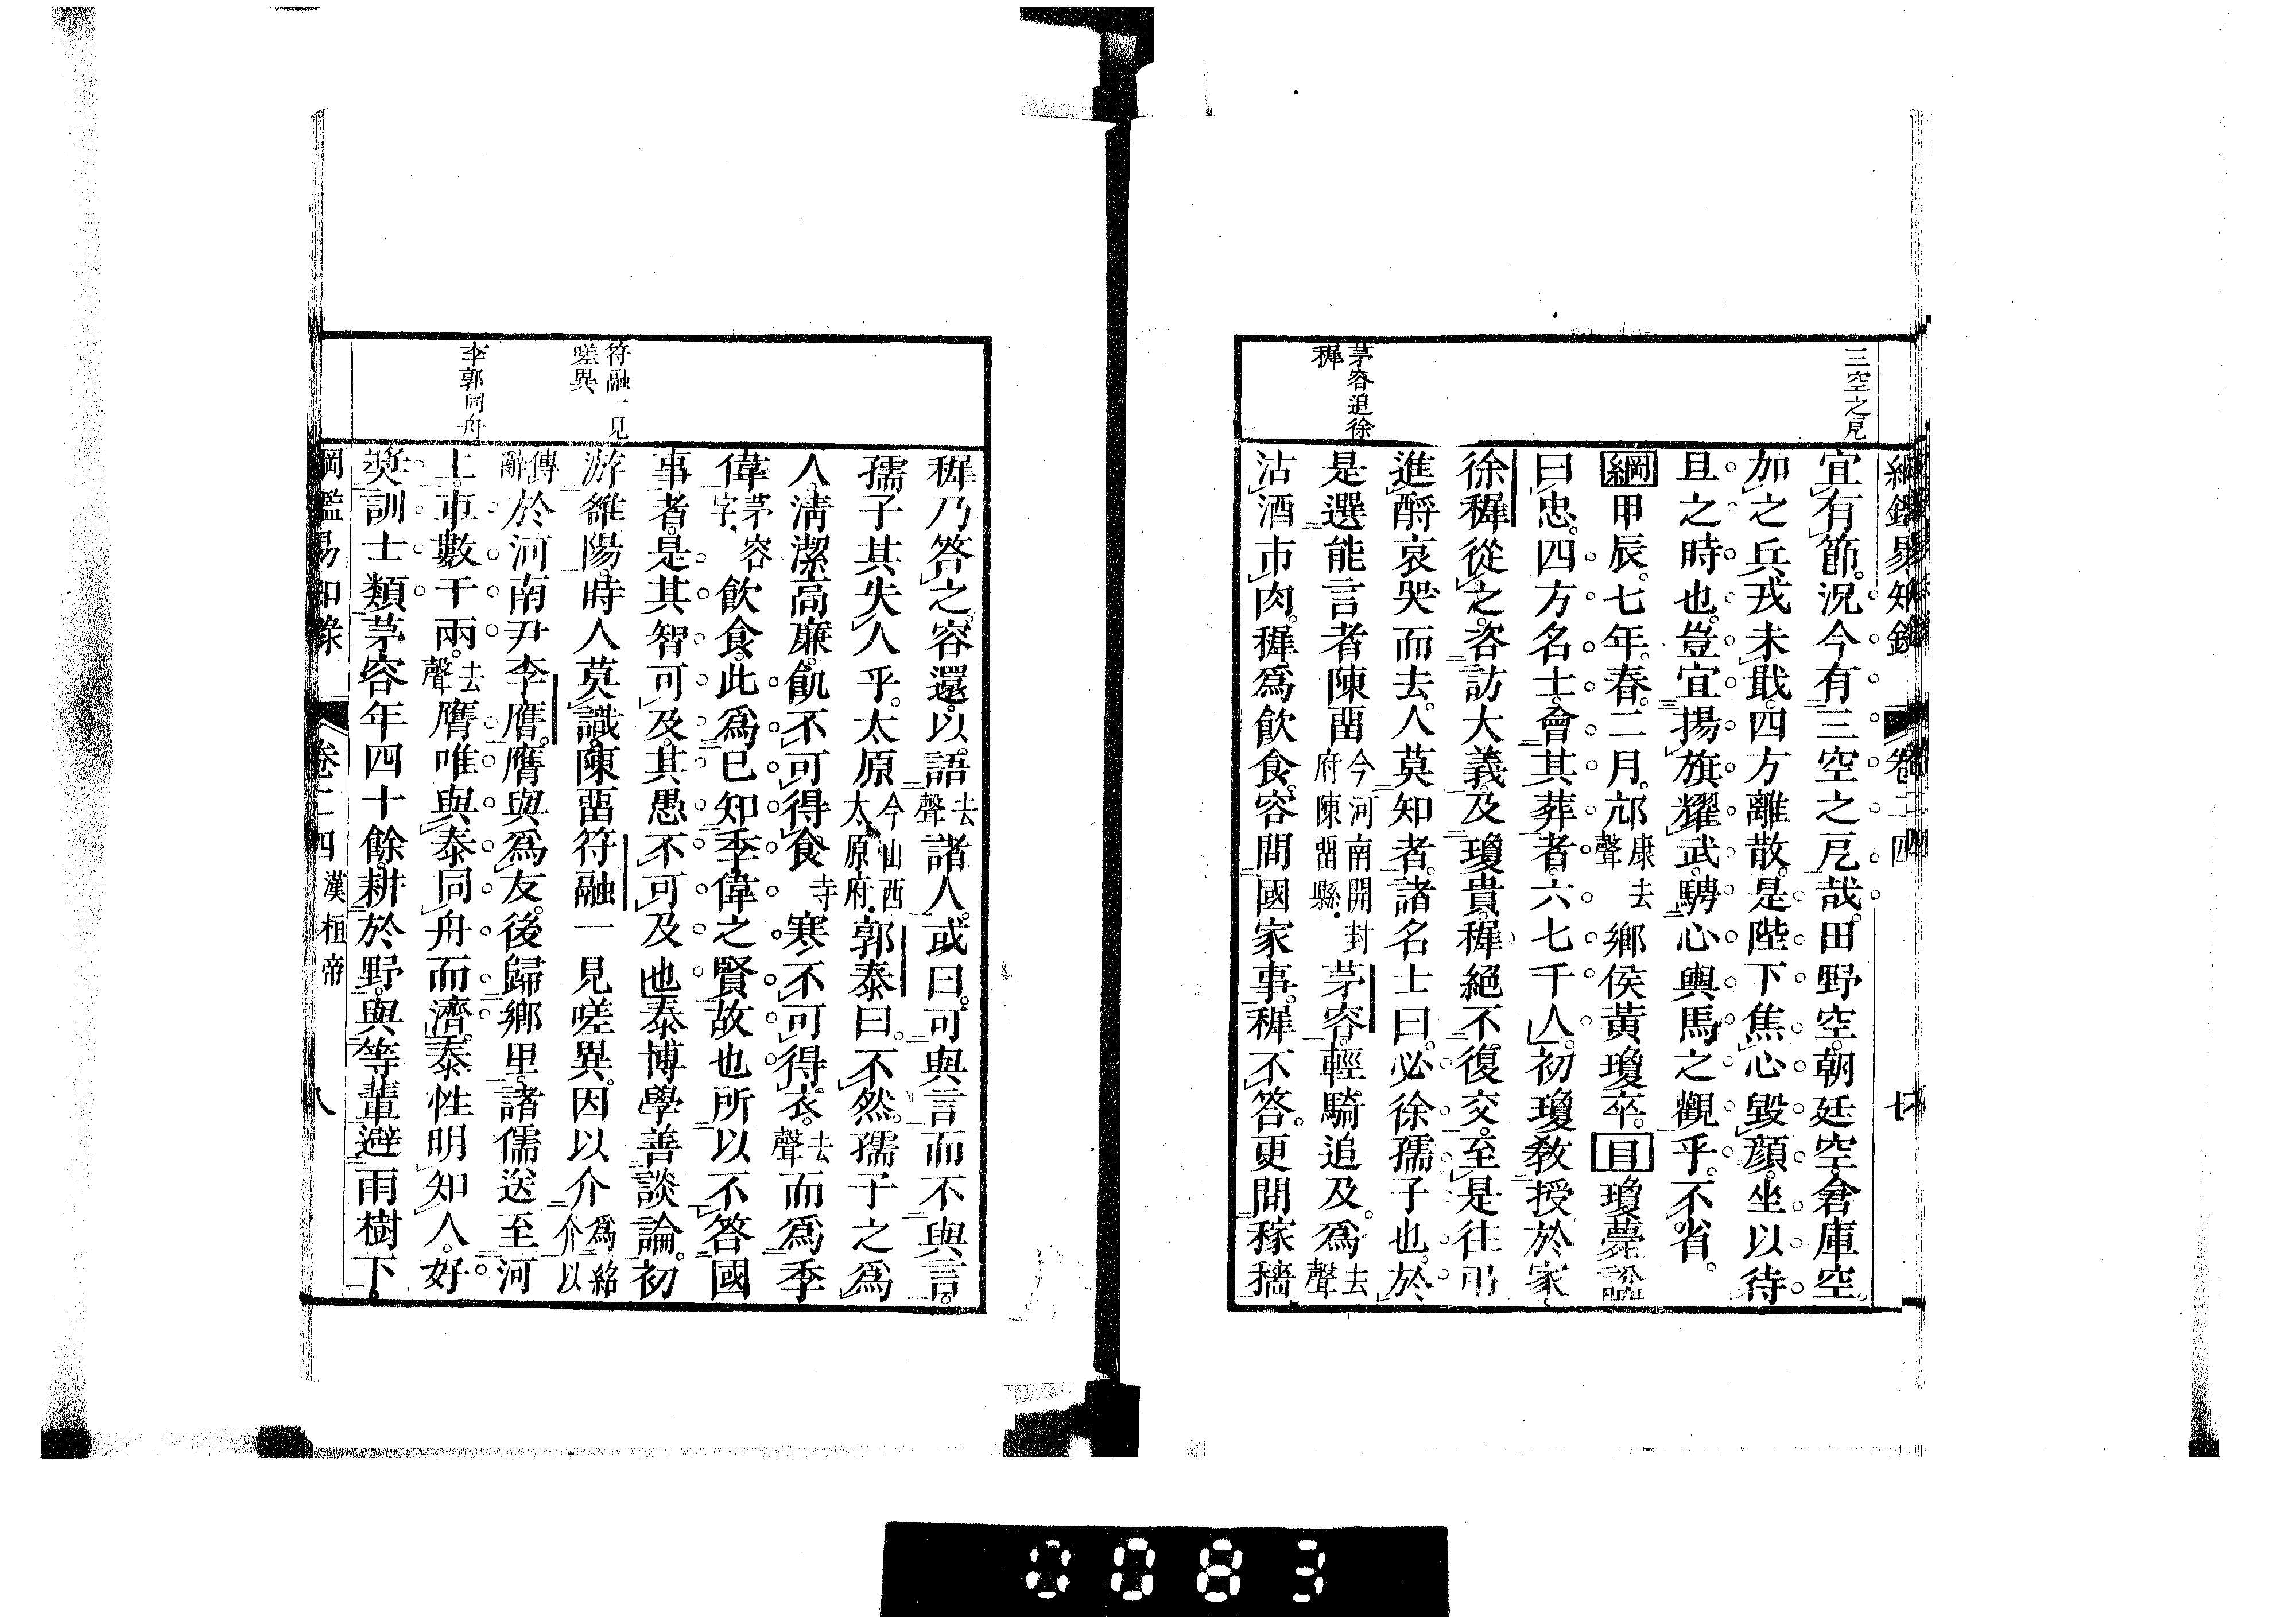 綱鑑易知錄 卷二四 七
三空之戹
宜有節。況今有三空之戹哉。田野空。朝廷空。倉庫空。
加之兵戎未戢。四方離散。是陛下焦心毀顏。坐以待
旦之時也。豈宜揚旗耀武。騁心輿馬之觀乎。不省。
綱甲辰。七年。春。二月。邟康去聲鄉侯黃瓊卒。目瓊薨。諡
曰忠。四方名士。會其葬者。六七千人。初瓊敎授於家。
徐穉從之。咨訪大義。及瓊貴。穉絕不復交。至是往弔
進酹哀哭而去。人莫知者。諸名士曰。必徐孺子也。於
茅容追徐
穉
是選能言者陳畱今河南開封府陳畱縣茅容。輕騎追及。爲去聲
沽酒市肉。穉爲飮食。容問國家事。穉不答。更問稼穡
穉乃答之。容還。以語去聲諸人。或曰。可與言而不與言。
孺子其失人乎。太原今山西太原府郭泰曰。不然。孺子之爲
人。淸潔高廉。飢不可得食寺寒不可得衣。去聲而爲季
偉茅容字飮食。此爲已知季偉之賢故也所以不答國
事者。是其智可及。其愚不可及也泰博學善談論。初
符融一見
嗟異
游雒陽。時人莫識。陳畱符融一見嗟異。因以介爲紹介以
傳辭於河南尹李膺。膺與爲友。後歸鄉里。諸儒送至河
李郭同舟
上。車數千兩。去聲膺唯與泰同舟而濟。泰性明知人。好
奬訓士類。茅容年四十餘。耕於野。與等輩避雨樹下。
綱鑑易知錄 卷二四 漢桓帝 八
0083